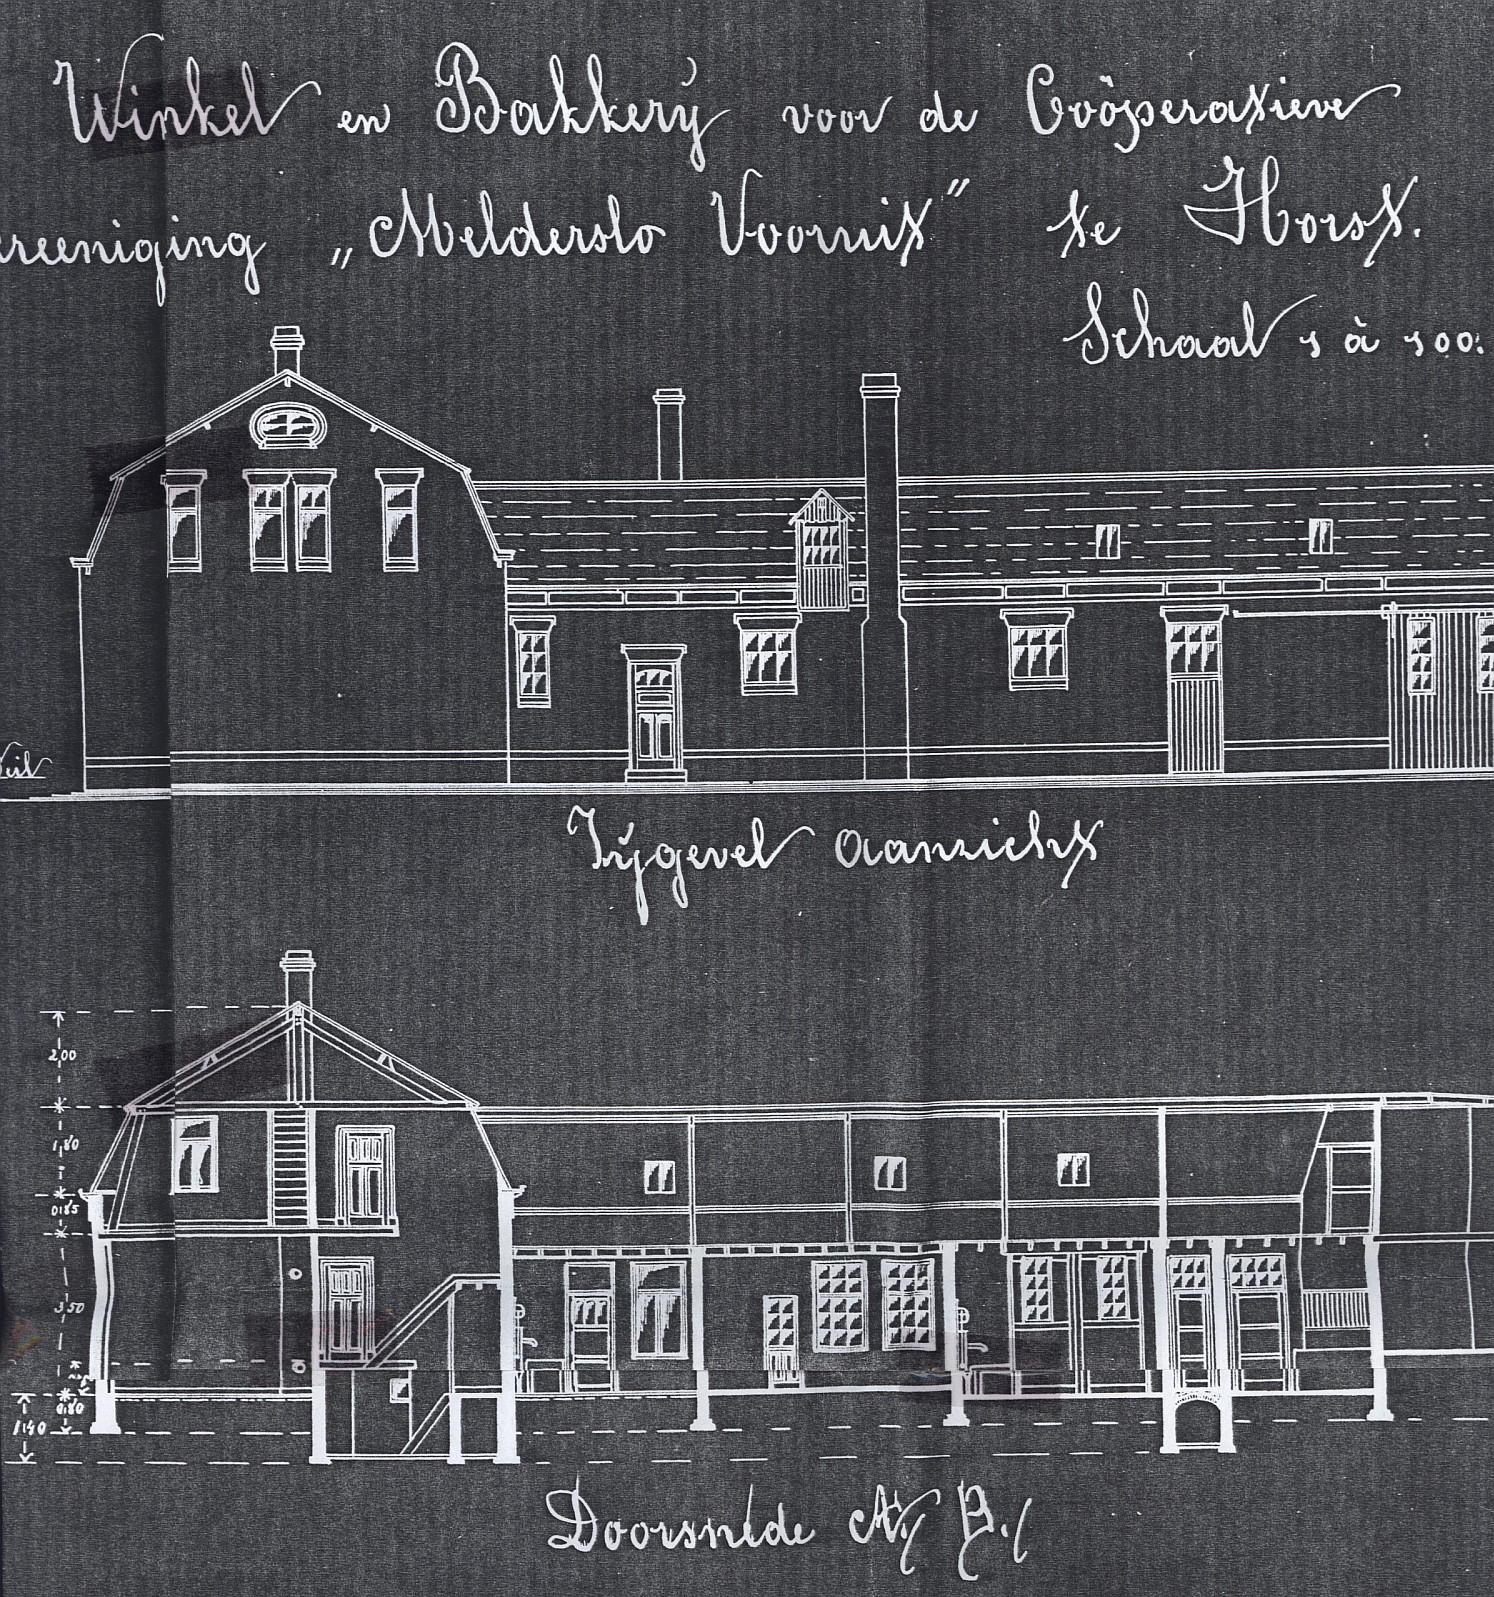 Winkel en Bakkerÿ voor de Coöperatieve
ereeniging „Melderslo Vooruit” te Horst.
Schaal 1 à 100.
Peil
Zÿgevel aanzicht
2,00
1,80
0,85
3,50
0,80
1,40
Doorsnede A. B.